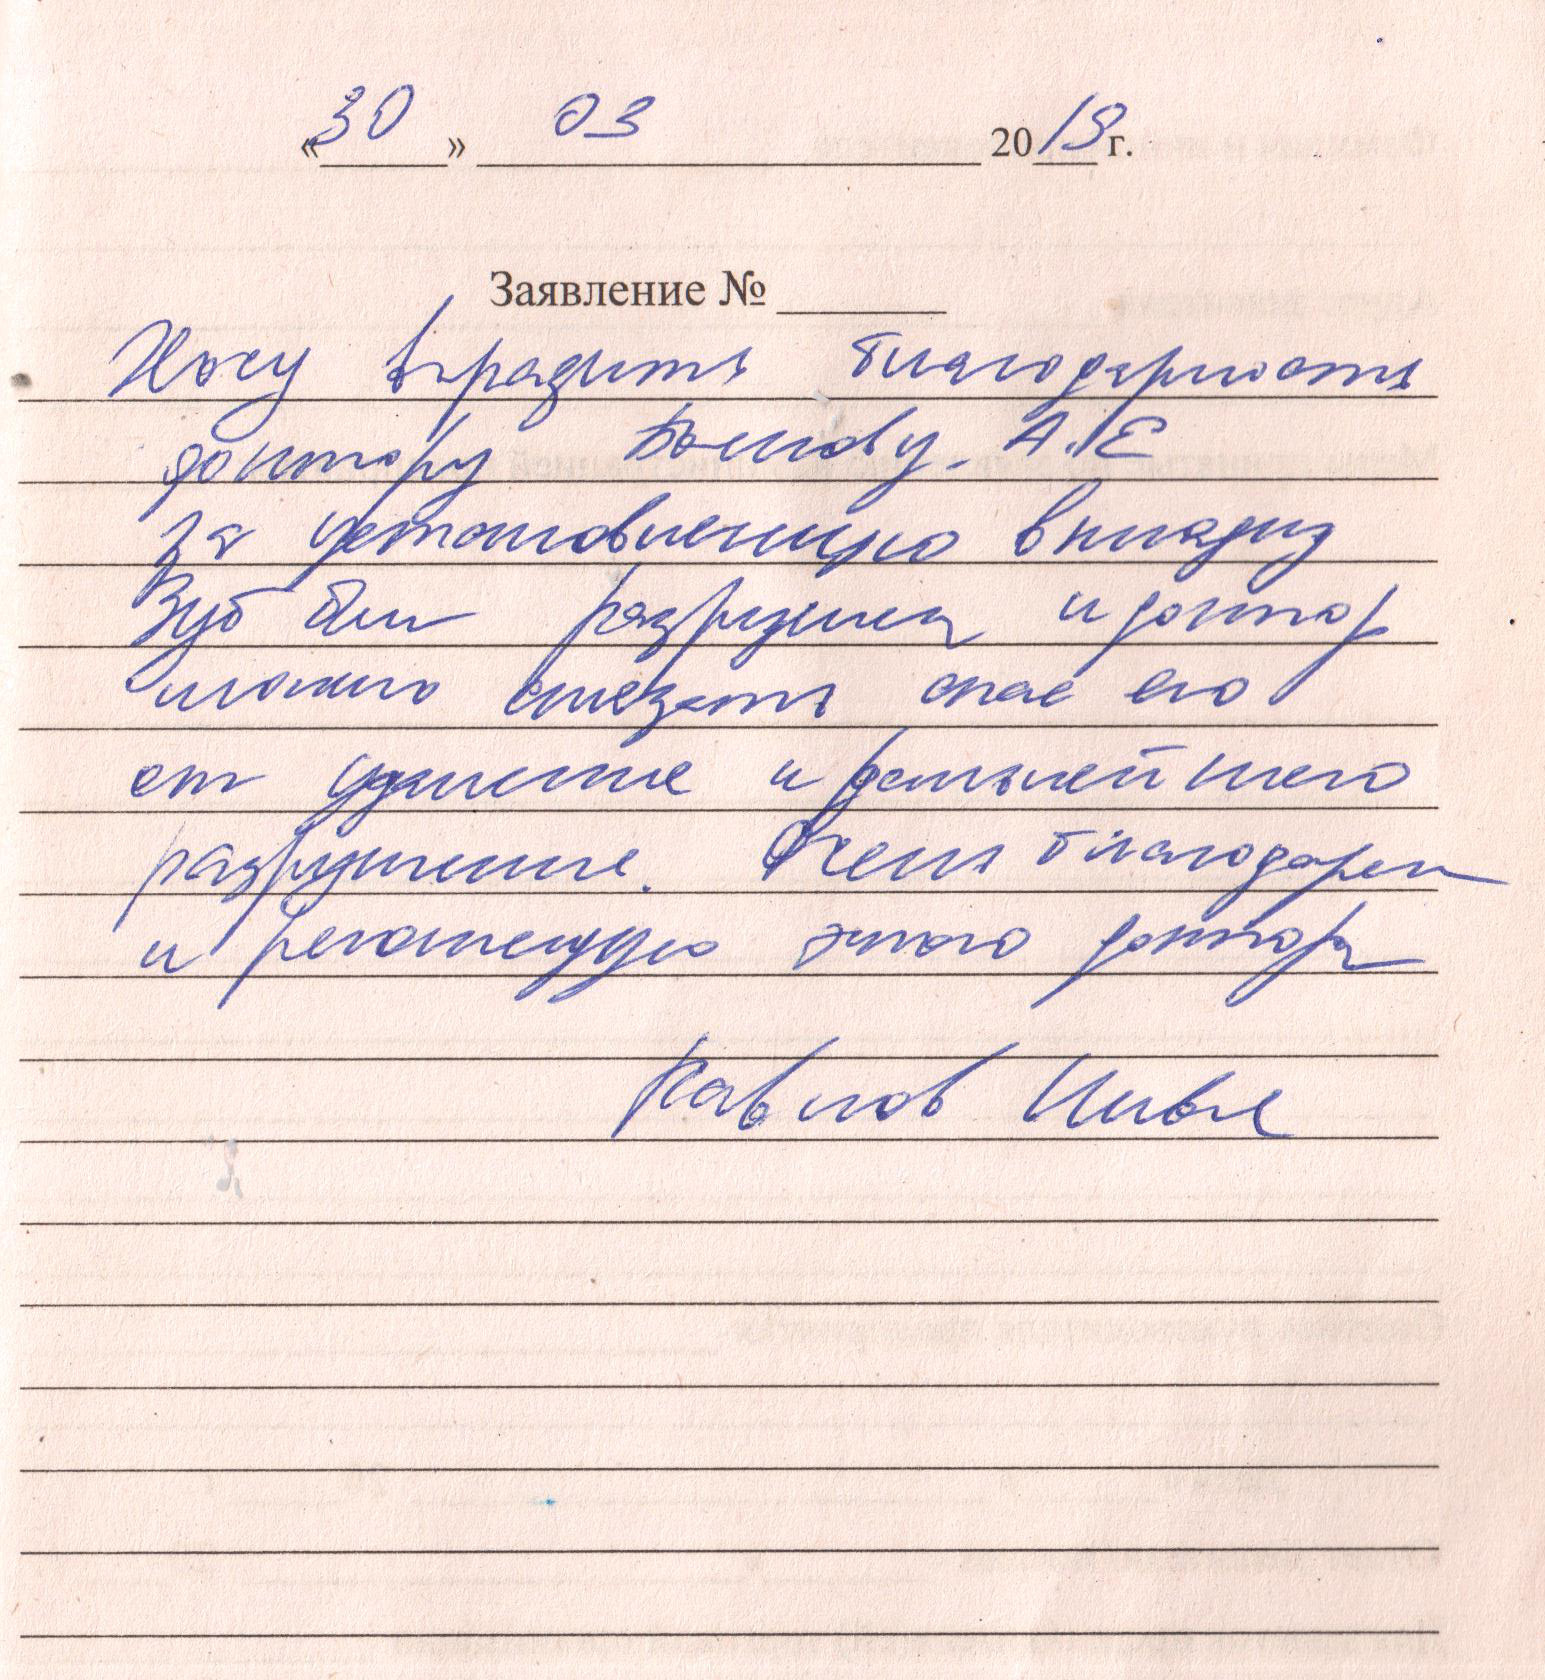 «30» 03 2019 г.
Заявление №
Хочу выразить благодарность
доктору А.Е
за установленную вкладку
Зуб был разрушен и доктор
можно сказать спас его
от удаление и дальнейшего
разрушение. Очень благодарен
и рекомендую этого доктора
Павлов Илья